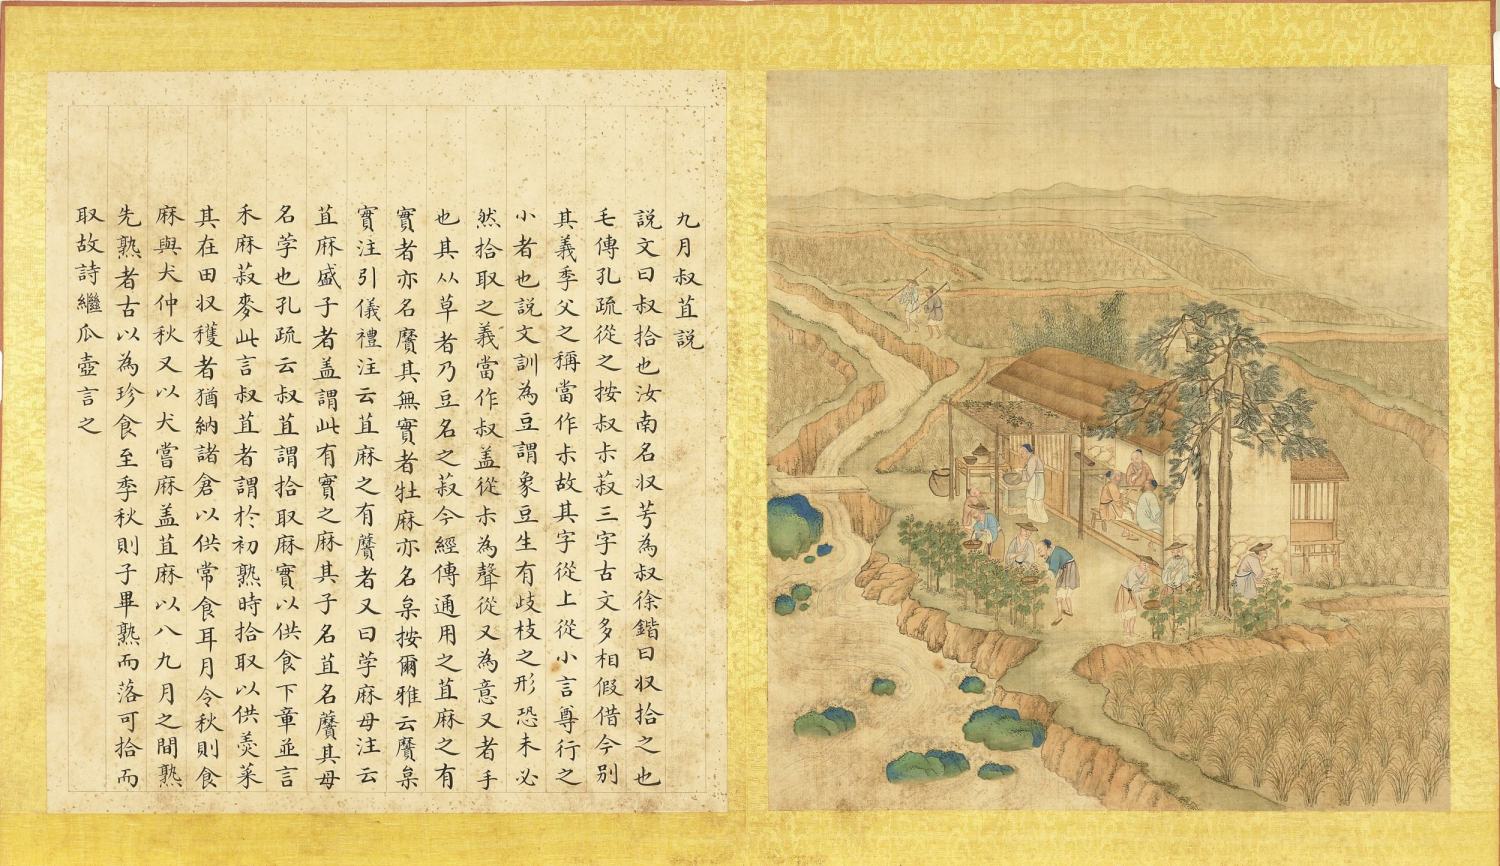 九月叔苴説
説文曰叔拾也汝南名収芌為叔徐鍇曰収拾之也
毛傳孔疏從之按叔尗菽三字古文多相假借今别
其義季父之稱當作尗故其字從上從小言尊行之
小者也説文訓為豆謂象豆生有歧枝之形恐未必
然拾取之義當作叔盖從尗為聲從又為意又者手
也其从草者乃豆名之菽今經傳通用之苴麻之有
實者亦名黂其無實者牡麻亦名枲按爾雅云黂枲
實注引儀禮注云苴麻之有蕡者又曰荸麻母注云
苴麻盛子者盖謂此有實之麻其子名苴名黂其母
名荸也孔疏云叔苴謂拾取麻實以供食下章並言
禾麻菽麥此言叔苴者謂於初熟時拾取以供羮菜
其在田収穫者猶納諸倉以供常食耳月令秋則食
麻與犬仲秋又以犬嘗麻盖苴麻以八九月之間熟
先熟者古以為珍食至季秋則子畢熟而落可拾而
取故詩繼瓜壺言之